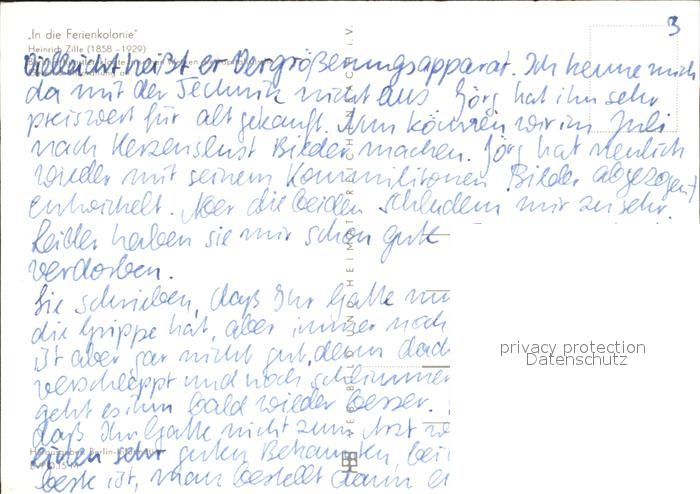 3
„In die Ferienkolonie"
Heinrich Zille (1858-1929)
Vielleicht heißt er Vergrößerungsapparat. Ich kenne mich
da mit der Technik nicht aus. Jörg hat ihn sehr
preiswert für alt gekauft. Nun können wir im Juli
nach Herzenslust Bilder machen. Jörg hat neulich
wieder mit seinem Kommilitonen Bilder abgezogen
entwickelt. Aber die beiden schludern mir zu sehr.
Leider haben sie mir schon gute
verdorben.
Sie schrieben, daß Ihr Gatte nun
die Grippe hat, aber immer noch
ist aber gar nicht gut, denn dad
verschleppt und noch schlimmer
geht es ihm bald wieder besser.
daß Ihr Gatte nicht zum Arzt
einen sehr guten Bekannten, bei
beste ist, man bestellt dann ei
EVP 0,15 M
privacy protection
Datenschutz